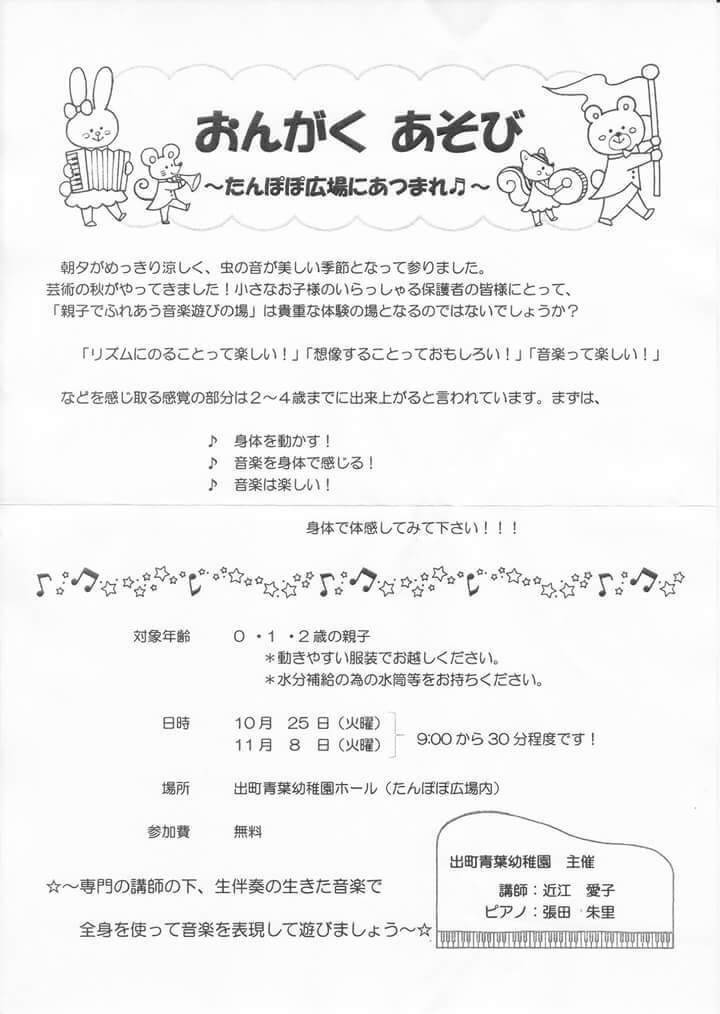 おんがく あそび
～たんぽぽ広場にあつまれ♫～
朝夕がめっきり涼しく、虫の音が美しい季節となって参りました。
芸術の秋がやってきました！小さなお子様のいらっしゃる保護者の皆様にとって、
「親子でふれあう音楽遊びの場」は貴重な体験の場となるのではないでしょうか？
「リズムにのることって楽しい！」「想像することっておもしろい！」「音楽って楽しい！」
などを感じ取る感覚の部分は２～４歳までに出来上がると言われています。まずは、
♪ 身体を動かす！
♪ 音楽を身体で感じる！
♪ 音楽は楽しい！
身体で体感してみて下さい！！！
対象年齢 ０・１・２歳の親子
＊動きやすい服装でお越しください。
＊水分補給の為の水筒等をお持ちください。
日時 10月 25日（火曜）
11月 8 日（火曜）
9:00から30分程度です！
場所 出町青葉幼稚園ホール（たんぽぽ広場内）
参加費 無料
☆～専門の講師の下、生伴奏の生きた音楽で
全身を使って音楽を表現して遊びましょう～☆
出町青葉幼稚園 主催
講師：近江 愛子
ピアノ：張田 朱里